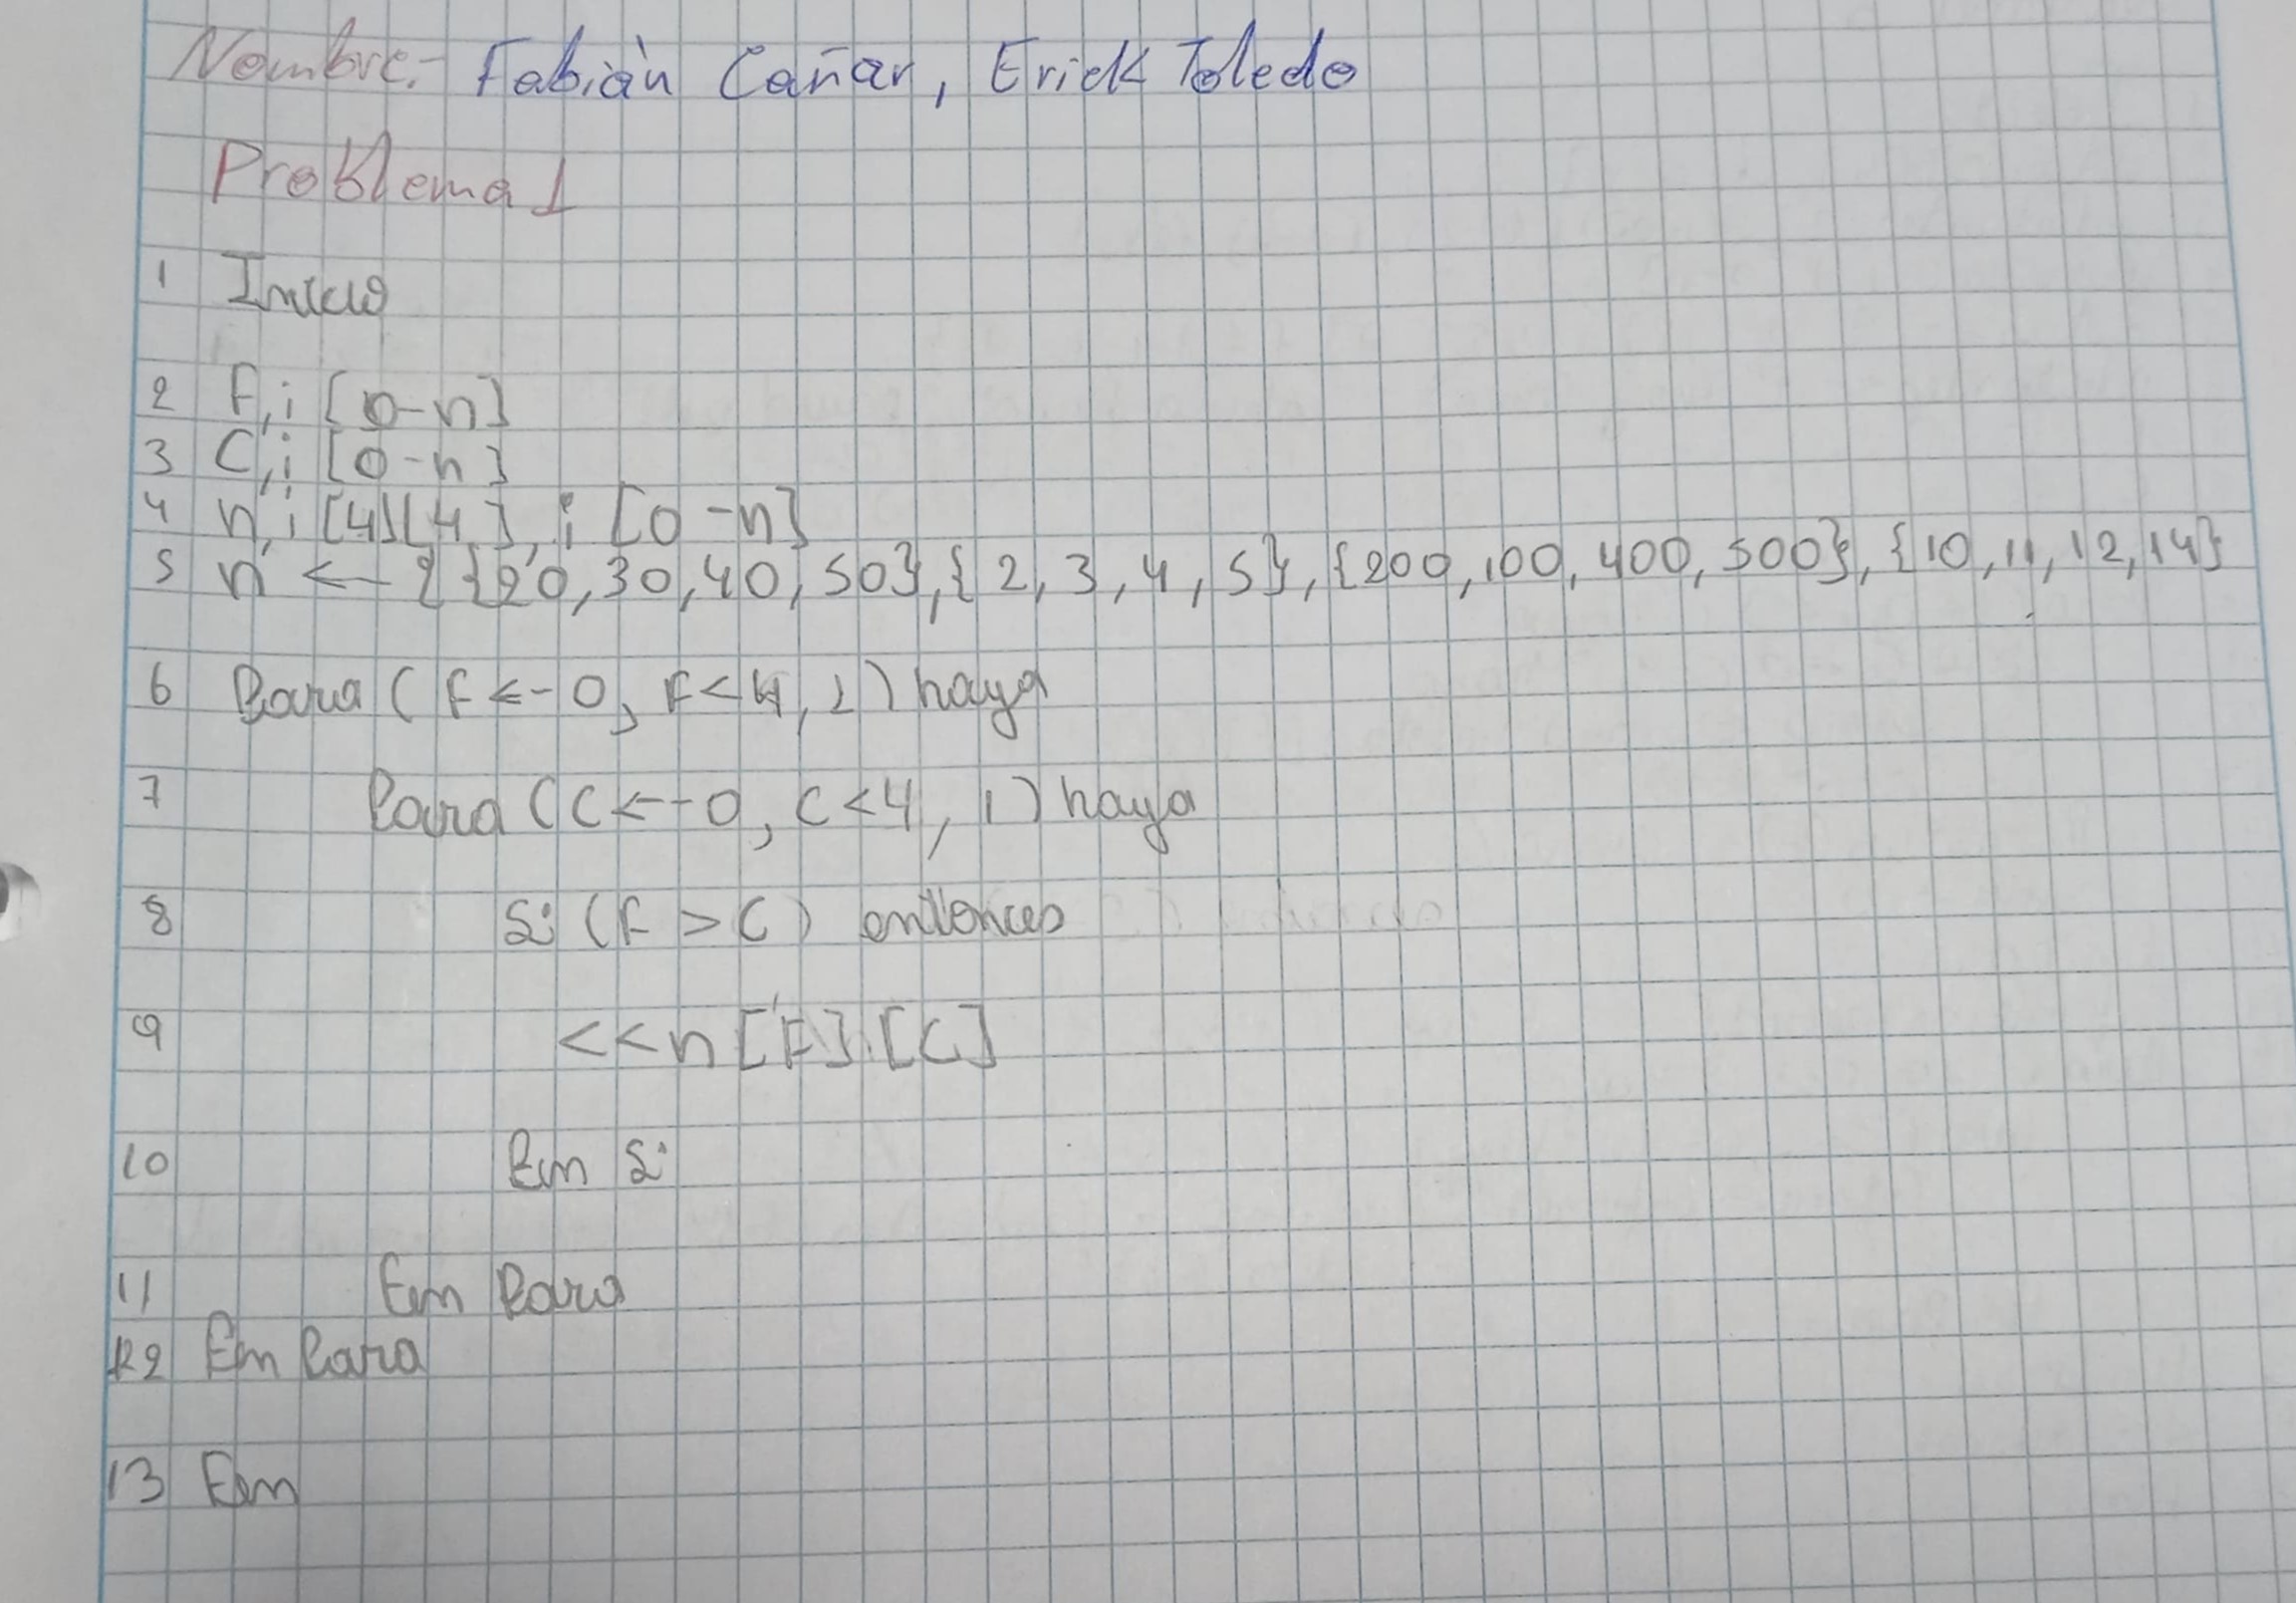 Nombre:- Fabián Cañar, Erick Toledo
Problema 1
1 Inicio
2 F, i [0-n]
3 C, i [0-n]
4 n, i [4][4], i [0-n]
5 n <- {{20,30,40,50},{2,3,4,5},{200,100,400,500},{10,11,12,14}
6 Para (F <- 0, F<4, 1) haya
7 Para (C <- 0, C<4, 1) haya
8 Si (F > C) entonces
9 <<n[F][C]
10 Fin Si
11 Fin Para
12 Fin Para
13 Fin